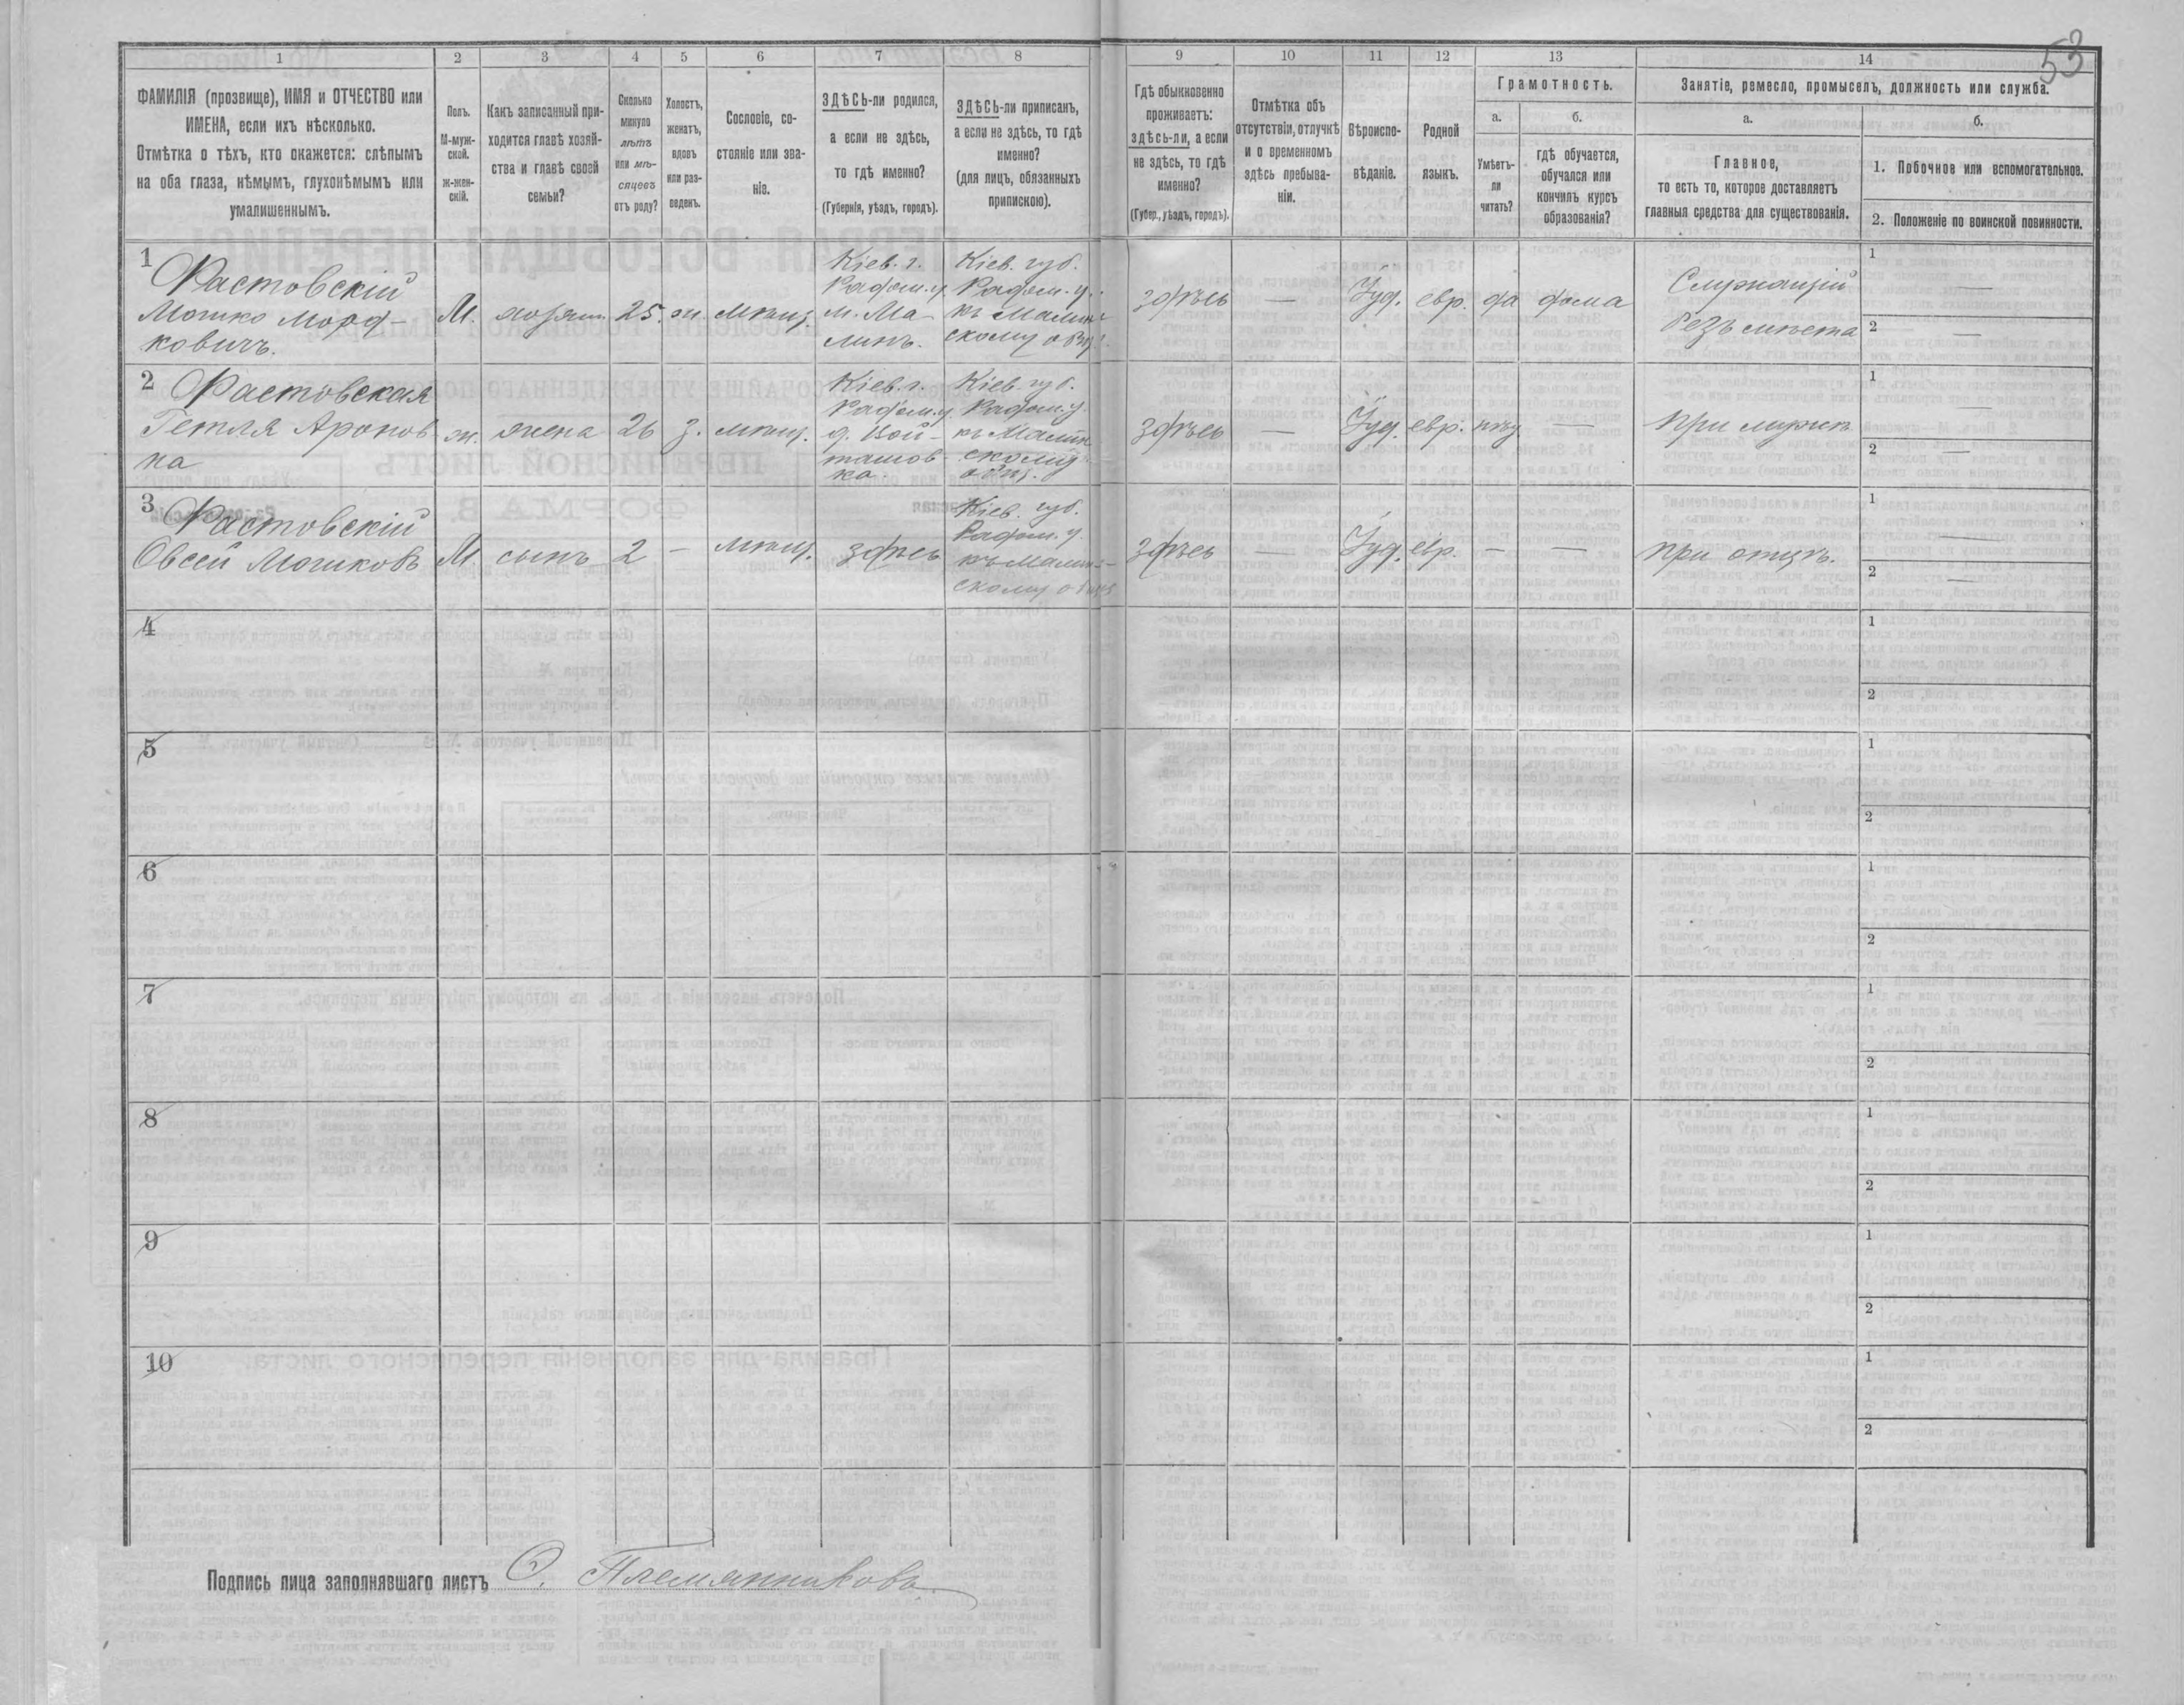 53
1
2
3
4
5
6
7
8
9
10
11
12
13
14
ФАМИЛІЯ (прозвище), ИМЯ и ОТЧЕСТВО или
ИМЕНА, если ихъ нѣсколько.
Отмѣтка о тѣхъ, кто окажется: слѣпымъ
на оба глаза, нѣмымъ, глухонѣмымъ или
умалишеннымъ.
Полъ.
М-муж-
ской.
Ж-жен-
скій.
Какъ записанный при-
ходится главѣ хозяй-
ства и главѣ своей
семьи?
Сколько
минуло
лѣтъ
или мѣ-
сяцевъ
отъ роду?
Холостъ,
женатъ,
вдовъ
или раз-
веденъ.
Сословіе, со-
стояніе или зва-
ніе.
ЗДѢСЬ-ли родился,
а если не здѣсь,
то гдѣ именно?
(Губернія, уѣздъ, городъ).
ЗДѢСЬ-ли приписанъ,
а если не здѣсь, то гдѣ
именно?
(для лицъ, обязанныхъ
припискою).
Гдѣ обыкновенно
проживаетъ:
здѣсь-ли, а если
не здѣсь, то гдѣ
именно?
(Губер., уѣздъ, городъ).
Отмѣтка объ
отсутствіи, отлучкѣ
и о временномъ
здѣсь пребыва-
ніи.
Вѣроиспо-
вѣданіе.
Родной
языкъ.
Грамотность.
а.
Умѣетъ-
ли
читать?
б.
гдѣ обучается,
обучался или
кончилъ курсъ
образованія?
Занятіе, ремесло, промыселъ, должность или служба.
а.
Главное,
то есть то, которое доставляетъ
главныя средства для существованія.
б.
1. Побочное или вспомогательное.
2. Положеніе по воинской повинности.
1
Растовскій
Мошко Морд-
ковичъ.
М.
хозяин
25.
ж.
мѣщ.
Кіев. г.
Радом. у
м. Ма-
линъ.
Кіев. губ.
Радом. у.
къ Малин-
скому общ.
здѣсь
—
Іуд.
евр.
да
дома
Служащій
безъ мѣста
1 —
2 —
2
Растовская
Гетля Аронов
на
ж.
жена
26
з.
мѣщ.
Кіев. г.
Радом. у
д. Вой-
ташов-
ка.
Кіев. губ.
Радом. у.
къ Малин-
скому
общ.
здѣсь
—
Іуд.
евр.
нѣт
—
при мужѣ
1 —
2 —
3
Растовскій
Овсей Мошковъ
М.
сынъ
2
—
мѣщ.
здѣсь
Кіев. губ.
Радом. у.
къ Малин-
скому общ.
здѣсь
—
Іуд.
евр.
—
—
при отцѣ.
1 —
2 —
4
1
2
5
1
2
6
1
2
7
1
2
8
1
2
9
1
2
10
1
2
Подпись лица заполнявшаго листъ
Племянниковъ